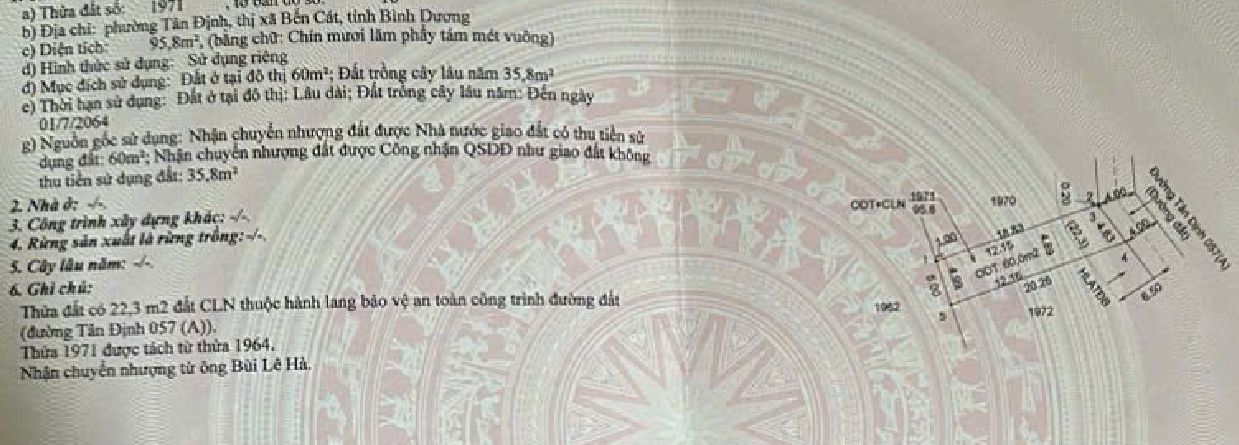 a) Thửa đất số: 1971 , tờ bản đồ số:
b) Địa chỉ: phường Tân Định, thị xã Bến Cát, tỉnh Bình Dương
c) Diện tích: 95,8m², (bằng chữ: Chín mươi lăm phẩy tám mét vuông)
d) Hình thức sử dụng: Sử dụng riêng
đ) Mục đích sử dụng: Đất ở tại đô thị 60m²; Đất trồng cây lâu năm 35,8m²
e) Thời hạn sử dụng: Đất ở tại đô thị: Lâu dài; Đất trồng cây lâu năm: Đến ngày
01/7/2064
g) Nguồn gốc sử dụng: Nhận chuyển nhượng đất được Nhà nước giao đất có thu tiền sử
dụng đất: 60m²; Nhận chuyển nhượng đất được Công nhận QSDĐ như giao đất không
thu tiền sử dụng đất: 35,8m²
2. Nhà ở: -/-.
3. Công trình xây dựng khác: -/-.
4. Rừng sản xuất là rừng trồng: -/-.
5. Cây lâu năm: -/-.
6. Ghi chú:
Thửa đất có 22,3 m2 đất CLN thuộc hành lang bảo vệ an toàn công trình đường đất
(đường Tân Định 057 (A)).
Thửa 1971 được tách từ thửa 1964.
Nhận chuyển nhượng từ ông Bùi Lê Hà.
ODT+CLN 1971
95.8
1970
0.20
2
4.00
Đường Tân Định 057(A)
(Đường đất)
3
4.63
4.00
1.00
18.83
12.15
(22.3)
4
1
ODT: 60,0m2
12.16
20.26
HLATĐB
6.50
5.00
1962
5
1972